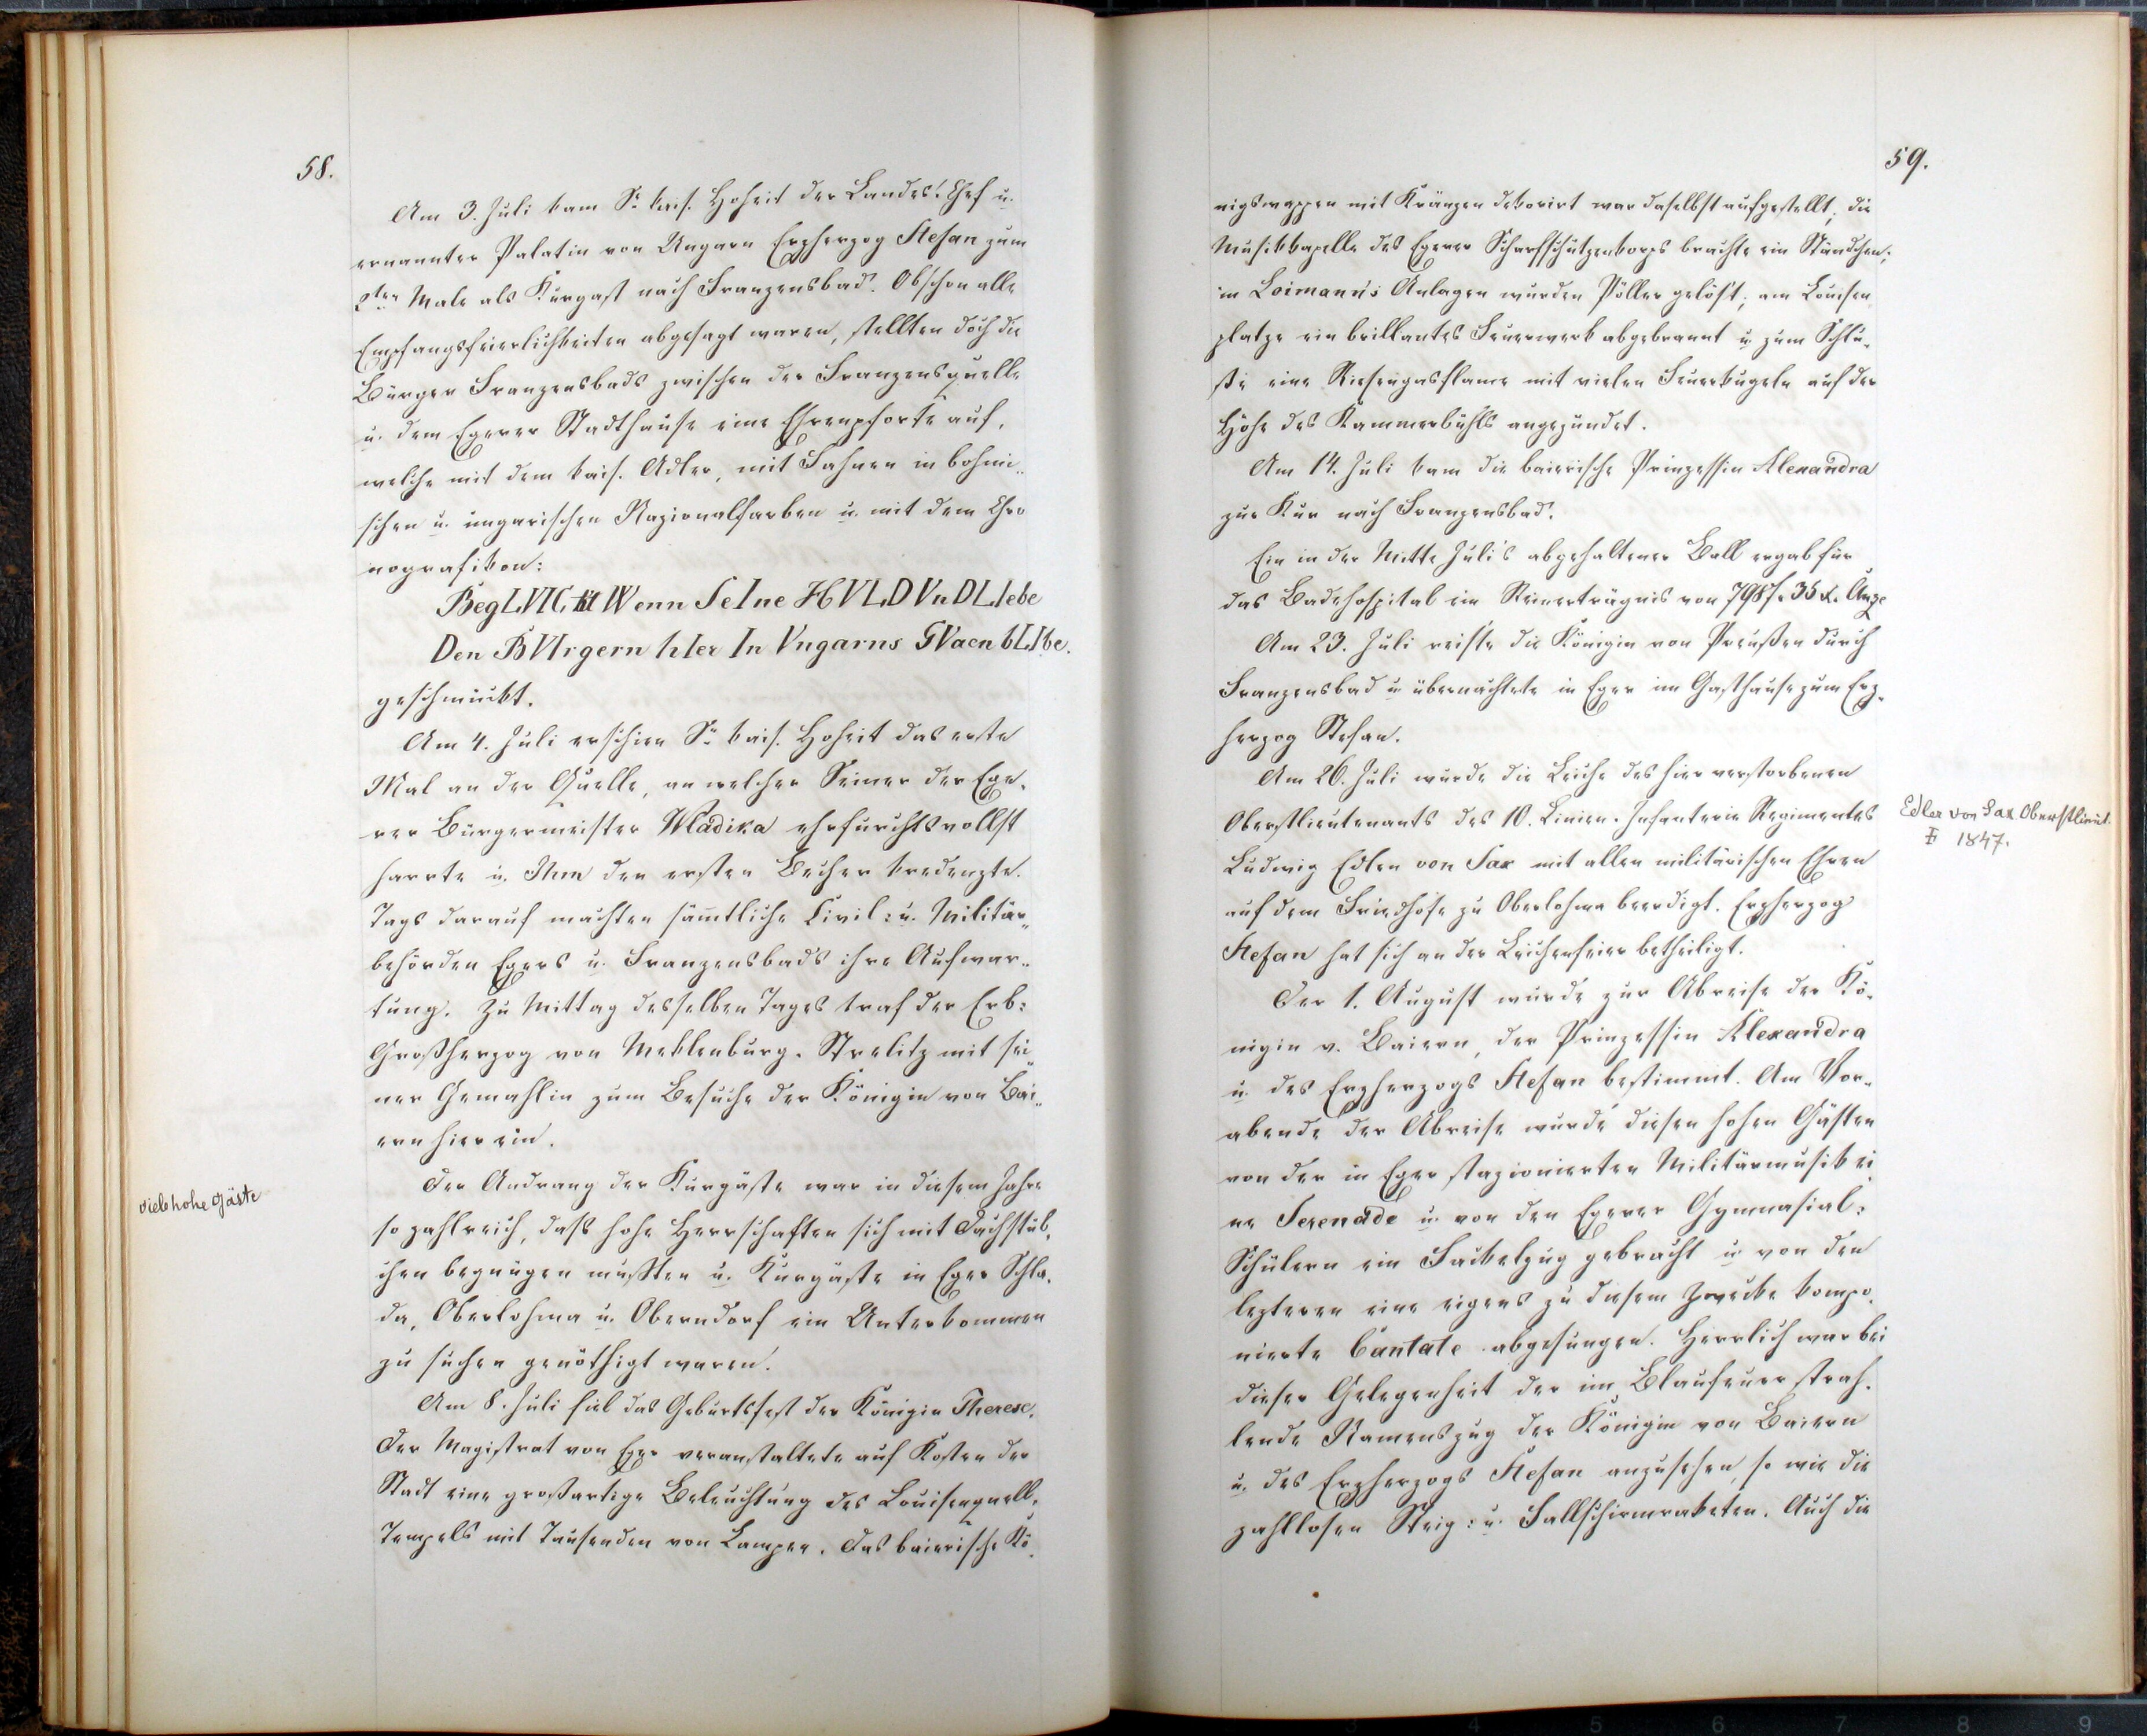 58.
Am 3. Juli kam Sr. kais. Hoheit der Landes-Chef u.
ernannter Palatin von Ungarn Erzherzog Stefan zum
2ten Male als Kurgast nach Franzensbad. Obschon alle
Empfangsfeierlichkeiten abgesagt waren, stellten doch die
Bürger Franzensbads zwischen der Franzensquelle
u. dem Egerer Stadthause eine Ehrenpforte auf,
welche mit dem kais. Adler, mit Fahnen in böhmi-
schen u. ungarischen Nazionalfarben u. mit dem Chro
nografikon:
BegLVIC kt WWenn SeIne HVLD Vn D LIebe
Den BVIrgern hIer In Vngarns GVaen bLIbe.
geschmückt.
Am 4. Juli erschien Se. kais. Hoheit das erste
Mal an der Quelle, an welcher Seiner der Ege-
rer Bürgermeister Wladika ehrfurchtsvollst
harrte u. Ihm den ersten Becher kredenzte.
Tags darauf machten sämtliche Civil: u. Militär-
behörden Egers u. Franzensbads ihre Aufwar-
tung. Zu Mittag desselben Tages traf der Erb-
Großherzog von Meklenburg-Strelitz mit sei-
ner Gemahlin zum Besuche der Königin von Bai-
ern hier ein.
Der Andrang der Kurgäste war in diesem Jahre
viele hohe Gäste
so zahlreich, daß hohe Herrschaften sich mit Dachstüb-
chen begnügen mußten u. Kurgäste in Eger Schla-
da, Oberlohma u. Oberndorf ein Unterkommen
zu suchen genöthigt waren.
Am 8. Juli fiel das Geburtsfest der Königin Therese.
Der Magistrat von Eger veranstaltete auf Kosten der
Stadt eine großartige Beleuchtung des Louisenquell-
Tempels mit Tausenden von Lampen. Das baierische Kö-
59.
nigswappen mit Kränzen dekorirt war daselbst aufgestellt, die
Musikkapelle des Egerer Scharfschützenkorps brachte ein Ständchen;
in Loimann's Anlagen wurden Pöller gelöst, am Louisen
platze ein brillantes Feuerwerk abgebrannt u. zum Schlu-
ße eine Riesengasflame mit vielen Feuerkugeln auf der
Höhe des Kammerbühls angezündet.
Am 14. Juli kam die baierische Prinzessin Alexandra
zur Kur nach Franzensbad.
Ein in der Mitte Juli's abgehaltener Ball ergab für
das Badehospital ein Reinerträgnis von 798 f. 35 x.
Am 23. Juli reiste die Königin von Preußen durch
Franzensbad u. übernachtete in Eger im Gasthause zum Erz-
herzog Stefan.
Am 26. Juli wurde die Leiche des hier verstorbenen
Oberstlieutenants des 10. Linien-Infanterie Regimentes
Edler von Sax Oberstlieut.
‡ 1847.
Ludwig Edlen von Sax mit allen militärischen Ehren
auf dem Friedhofe zu Oberlohma beerdigt. Erzherzog
Stefan hat sich an der Leichenfeier betheiligt.
Der 1. August wurde zur Abreise der Kö-
nigin v. Baiern, der Prinzessin Alexandra
u. des Erzherzogs Stefan bestimmt. Am Vor-
abende der Abreise wurde diesen hohen Gästen
von der in Eger stazionierten Militärmusik ei
ne Serenade u. von den Egerer Gymnasial-
Schülern ein Fackelzug gebracht u. von den
lezteren eine eigens zu diesem Zwecke kompo-
nierte Cantate abgesungen. Herrlich war bei
dieser Gelegenheit der im Blaufeuer strah-
lende Namenszug der Königin von Baiern
u. des Erzherzogs Stefan anzusehen, so wie die
zahllosen Steig- u. Fallschirmraketen. Auch die